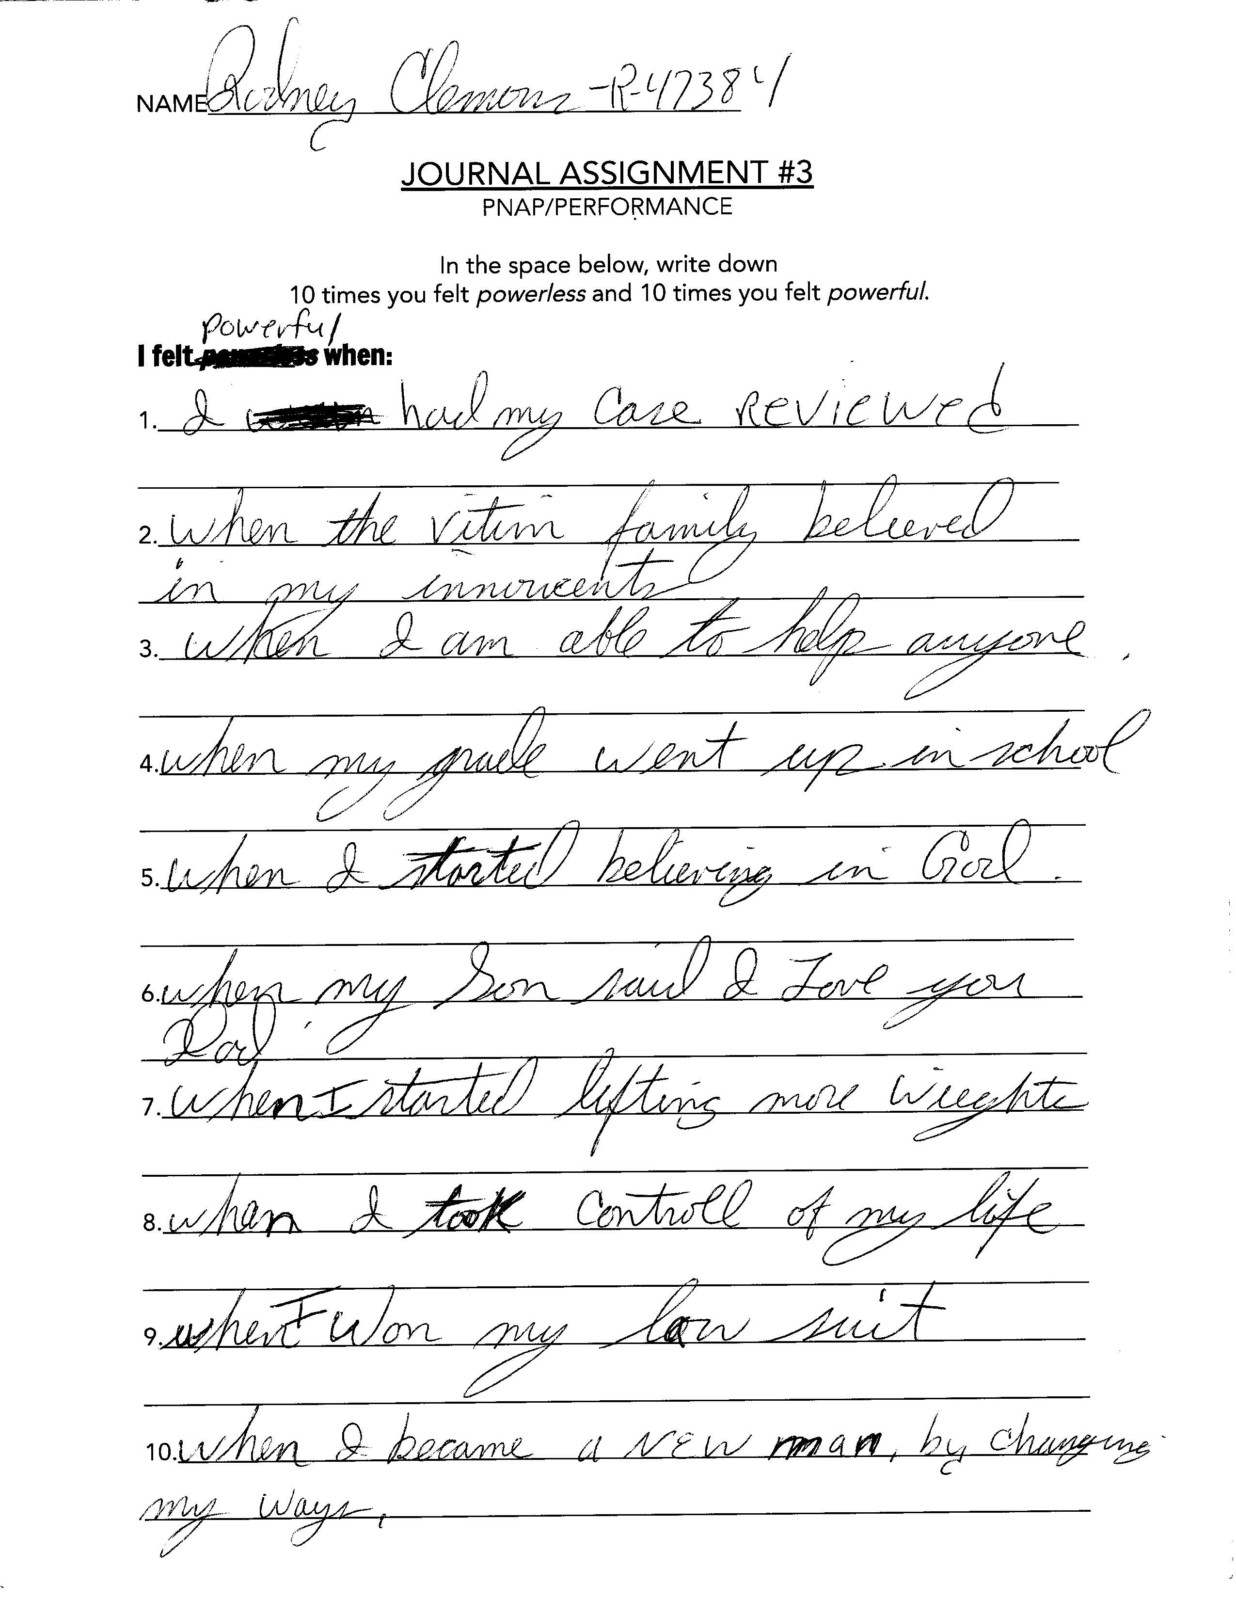 NAME Rodney Clemons -R-47384
JOURNAL ASSIGNMENT #3
PNAP/PERFORMANCE
In the space below, write down
10 times you felt powerless and 10 times you felt powerful.
powerful
I felt powerless when:
1. I had my Case REVIEWED
2. when the vitim family believed
in my innoucents
3. when I am able to help anyone.
4. when my grade went up in school
5. when I started believing in God.
6. when my Son said I Love you
Dad
7. when I started lifting more Wieghts
8. when I took Controll of my life
9. when I Won my law suit
10. when I became a NEW man, by changing
my ways.